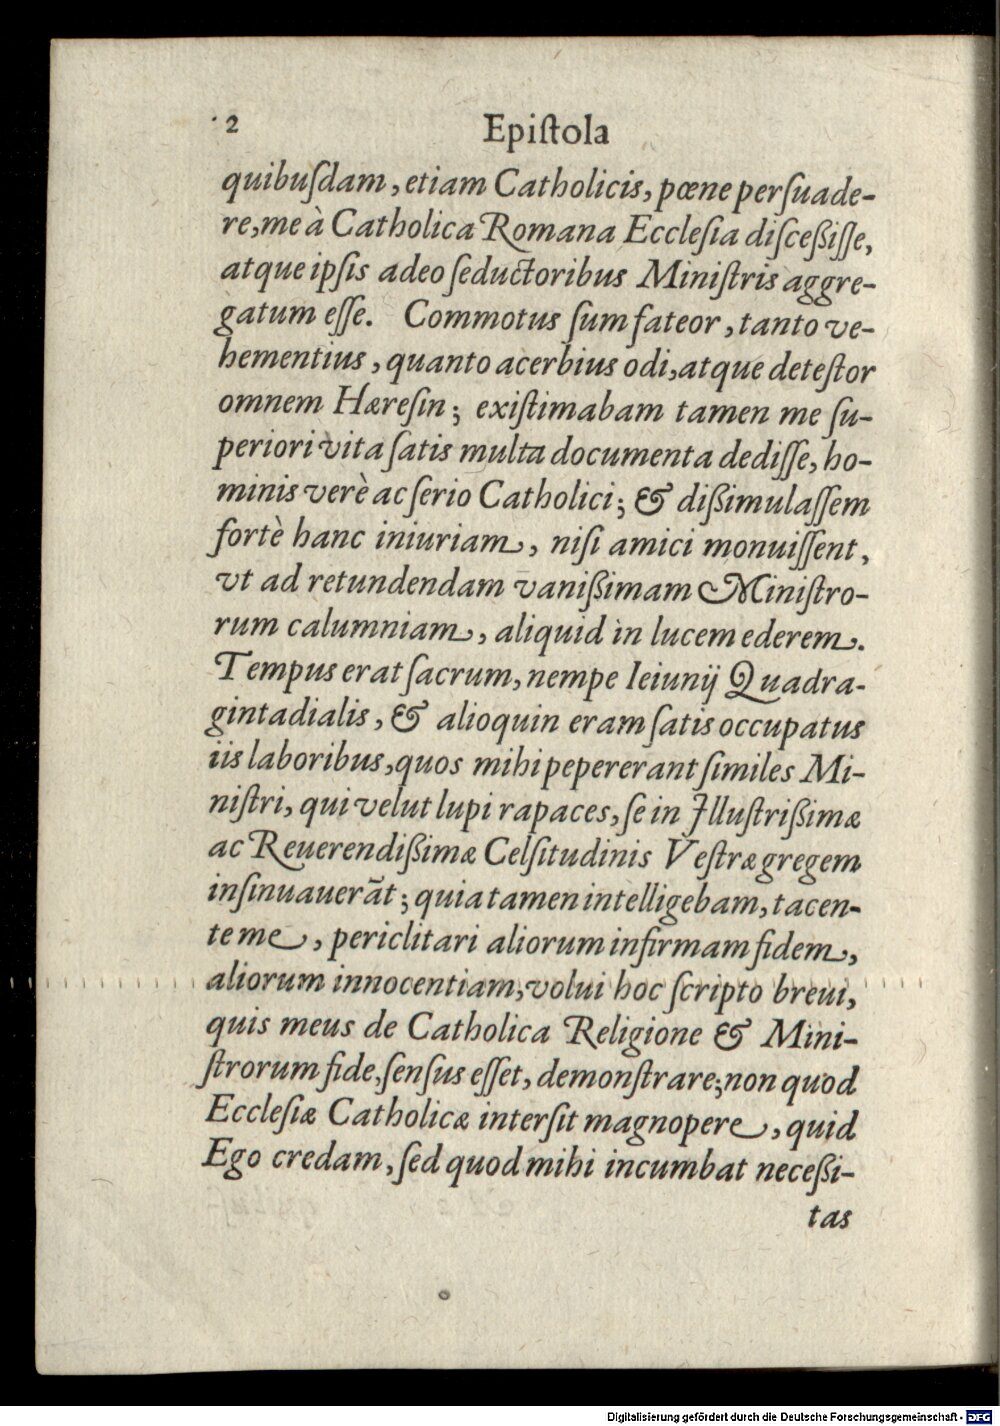 2 Epiſtola
quibuſdam, etiam Catholicis, pœne perſuade-
re, me à Catholica Romana Eccleſia diſceßiſſe,
atque ipſis adeo ſeductoribus Miniſtris aggre-
gatum eſſe. Commotus ſum fateor, tanto ve-
hementius, quanto acerbius odi, atque deteſtor
omnem Hæreſin; exiſtimabam tamen me ſu-
periori vita ſatis multa documenta dediſſe, ho-
minis verè ac ſerio Catholici; & dißimulaſſem
fortè hanc iniuriam, niſi amici monuiſſent,
vt ad retundendam vanißimam Miniſtro-
rum calumniam, aliquid in lucem ederem.
Tempus erat ſacrum, nempe Ieiunij Quadra-
gintadialis, & alioquin eram ſatis occupatus
iis laboribus, quos mihi pepererant ſimiles Mi-
niſtri, qui velut lupi rapaces, ſe in Illuſtrißimæ
ac Reuerendißimæ Celſitudinis Veſtræ gregem
inſinuauerāt; quia tamen intelligebam, tacen-
te me, periclitari aliorum infirmam fidem,
aliorum innocentiam, volui hoc ſcripto breui,
quis meus de Catholica Religione & Mini-
ſtrorum fide, ſenſus eſſet, demonſtrare; non quod
Eccleſiæ Catholicæ interſit magnopere, quid
Ego credam, ſed quod mihi incumbat neceßi-
tas
Digitalisierung gefördert durch die Deutsche Forschungsgemeinschaft - DFG